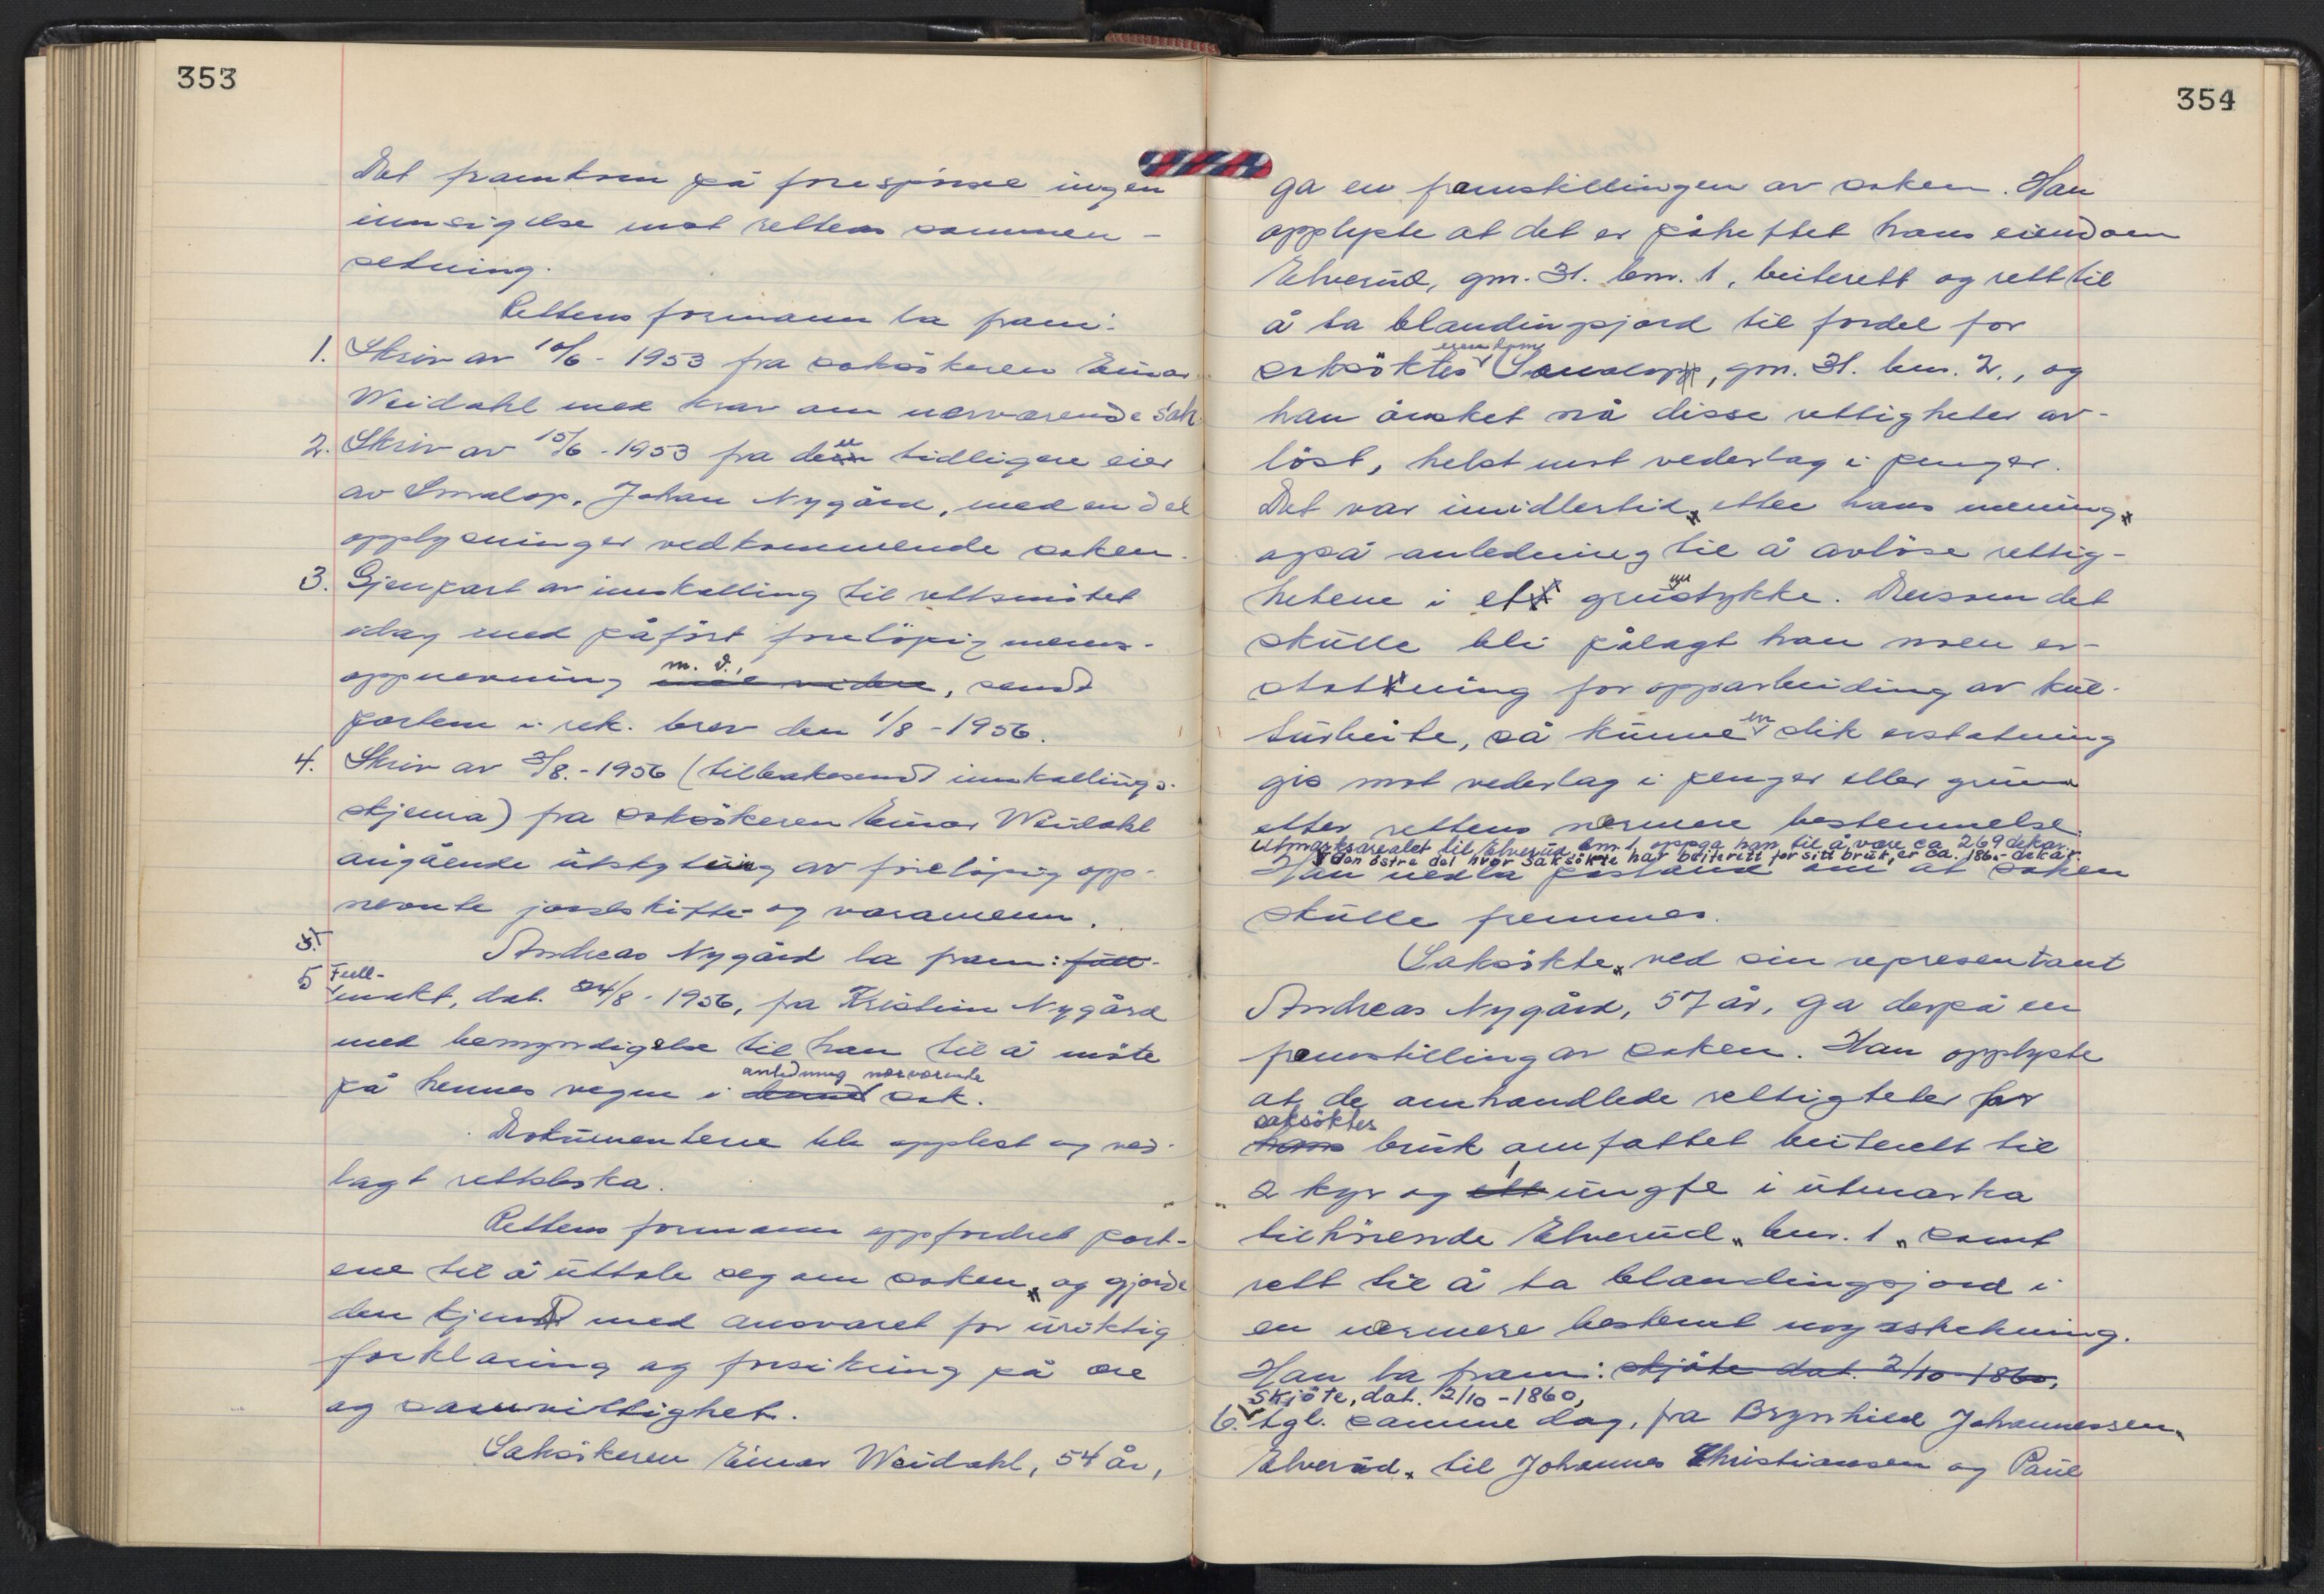 353
Det framkom på forespørsel ingen
innsigelse mot rettens sammen-
setning.
Rettens formann la fram:
1. Skriv av 10/6 - 1953 fra saksökeren Einar
Weidahl med krav om nærværende sak.
2. Skriv av 15/6 - 1953 fra den tidligere eier
av Smalop, Johan Nygård, med en del
opplysninger vedkommende saken.
3. Gjenpart av innkalling til rettsmötet
idag med påfört forelöpig menns-
oppnevning m. v. med videre, sendt
partene i rek. brev den 1/8 - 1956.
4. Skriv av 3/8. - 1956 (tilbakesendt innkallings-
skjema) fra saksökeren Einar Weidahl
angående utskyting av forelöpig opp-
nevnte jordskifte- og varamenn.
5. Andreas Nygård la fram: full-
5 Full-
makt, dat. 24/8 - 1956, fra Kristine Nygård
med bemyndigelse til han til å möte
på hennes vegne i anledning nærværende denne sak.
Dokumentene ble opplest og ved-
lagt rettsboka.
Rettens formann oppfordret part-
ene til å uttale seg om saken, og gjorde
den kjendt med ansvaret for uriktig
forklaring og forsikring på ære
og samvittighet.
Saksökeren Einar Weidahl, 54 år,
354
ga en framstillingen av saken. Han
opplyste at det er påheftet hans eiendom
Elverud, gnr. 31. bnr. 1, beiterett og rett til
å ta blandingsjord til fordel for
saksöktes eiendom Smalopp, gnr. 31. bnr. 2., og
han önsket nå disse rettigheter av-
löst, helst mot vederlag i penger.
Det var imidlertid, etter hans mening,
også anledning til å avlöse rettig-
hetene i et grunnstykke. Dersom det
skulle bli pålagt han noen er-
statning for opparbeiding av kul-
turbeite, så kunne en slik erstatning
gis mot vederlag i penger eller grunn
etter rettens nærmere bestemmelse.
Utmarksarealet til Elverud bnr. 1 oppga han til å være ca 269 dekar.
I den östre del hvor saksökte har beiterett for sitt bruk, er ca. 186.- dekar.
Han nedla påstand om at saken
skulle fremmes.
Saksökte, ved sin representant
Andreas Nygård, 57 år, ga derpå en
framstilling av saken. Han opplyste
at de omhandlede rettigheter for
saksöktes
hans bruk omfattet beiterett til
2 kyr og ett 1 ungfe i utmarka
tilhörende Elverud, bnr. 1, samt
rett til å ta blandingsjord i
en nærmere bestemt myrstrekning.
Han la fram: skjöte dat. 2/10 - 1860,
Skjöte, dat. 2/10 - 1860,
6. tgl. samme dag, fra Brynhild Johannessen,
Elverud, til Johannes Christiansen og Paul